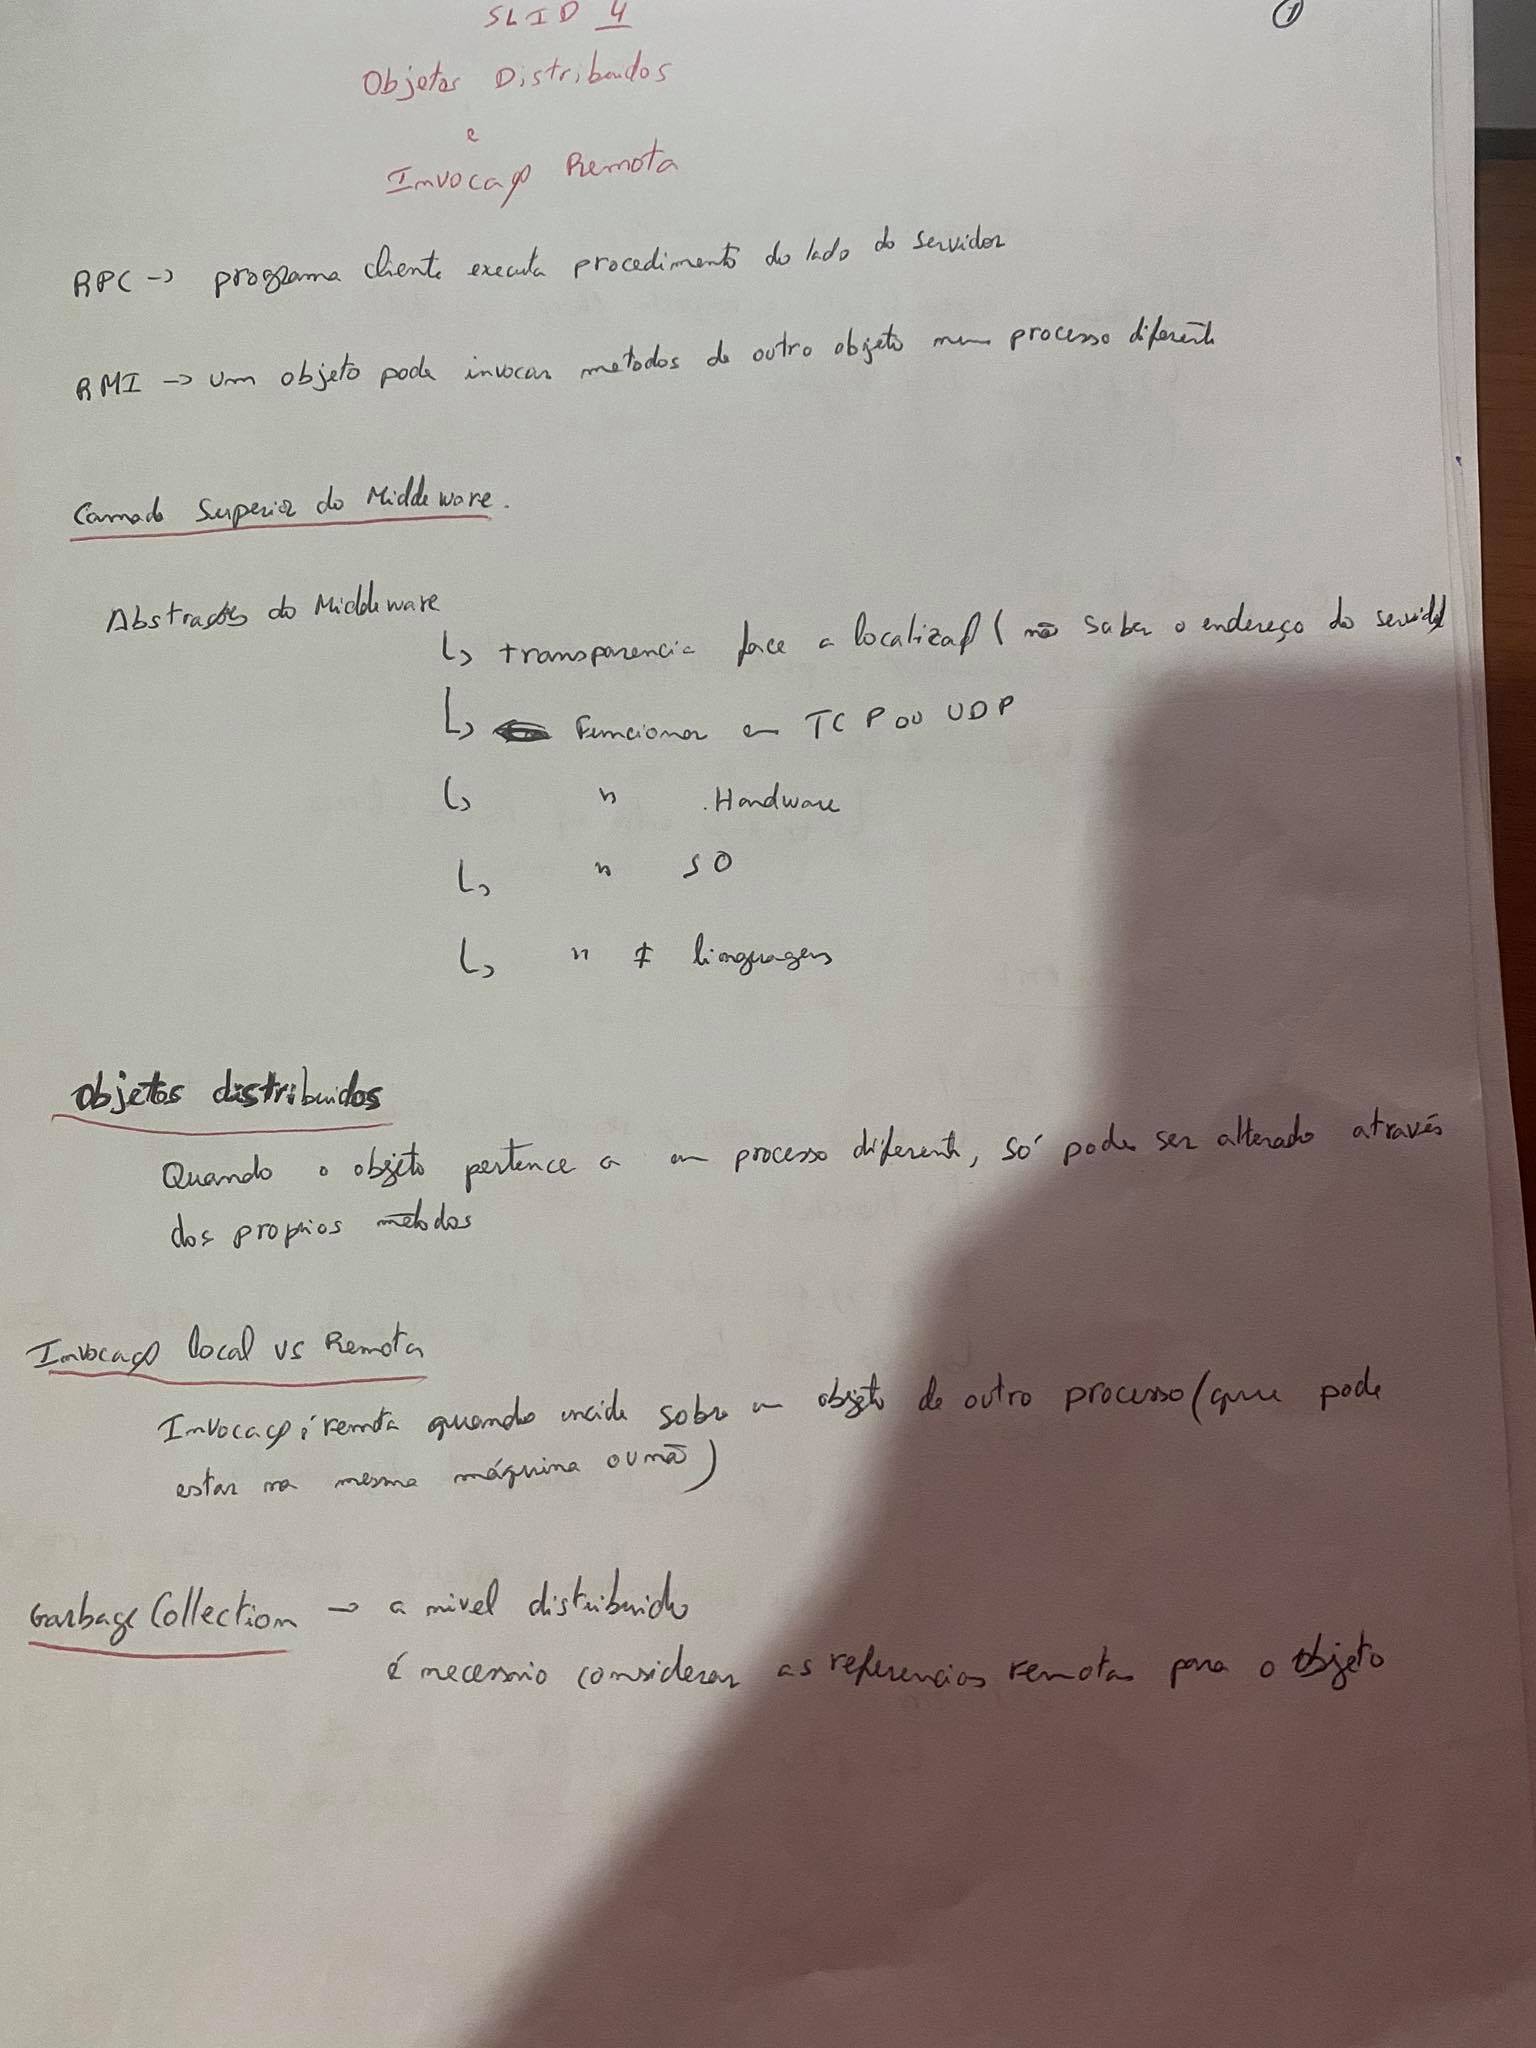 SLID 4
①
Objetos Distribuidos
e
Invocaçº Remota
RPC -> programa cliente executa procedimento do lado do servidor
RMI -> um objeto pode invocar metodos de outro objeto num processo diferente
Camada Superior do Middleware.
Abstrações do Middleware
↳ transparencia face a localizaçº ( não saber o endereço do servidor
↳ Funcionar em TCP ou UDP
↳ " Hardware
↳ " SO
↳ " ≠ linguagens
Objetos distribuidos
Quando o objeto pertence a um processo diferente, só pode ser alterado através
dos proprios métodos
Invocaçº local vs Remota
Invocaçº é remota quando incide sobre um objeto de outro processo (que pode
estar na mesma máquina ou não)
Garbage Collection -> a nivel distribuido
é necessario considerar as referencias remotas para o objeto